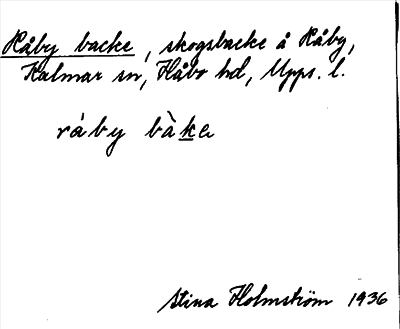 Råby backe, skogsbacke å Råby,
Kalmar sn, Håbo hd, Upps. l.
råby bàke
Stina Holmström 1936